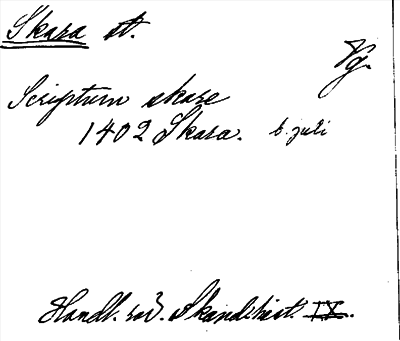 Skara st.
Vg.
Scriptum skare
1402 Skara. 6. juli
Handl. rör. Skand. hist. IX.